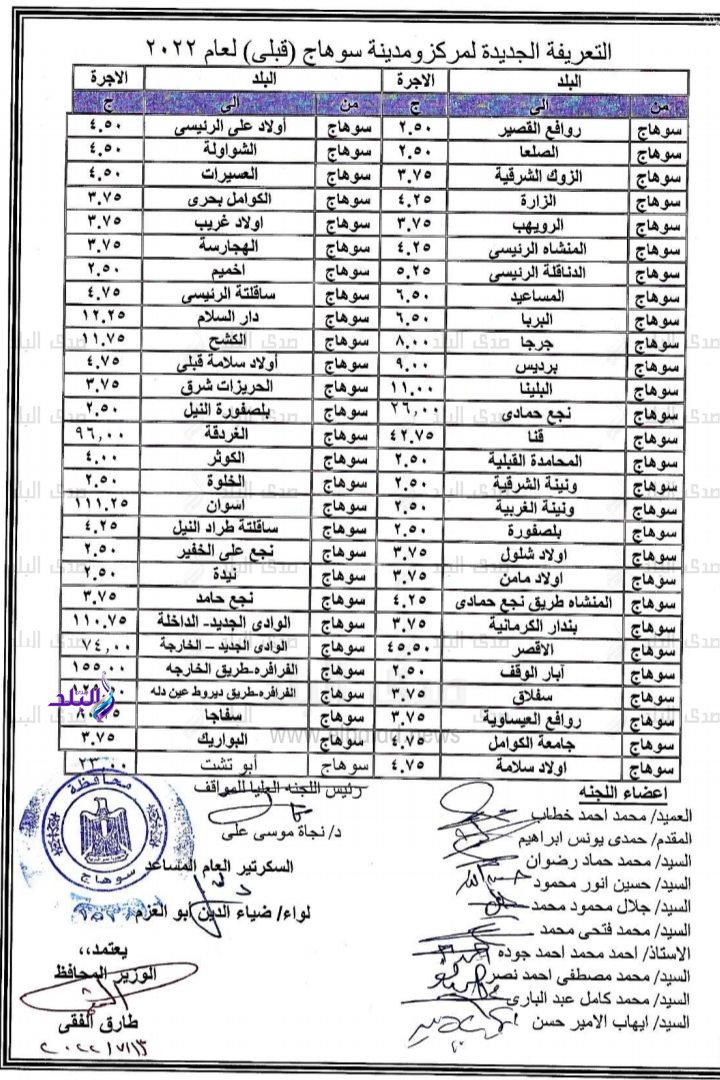 التعريفة الجديدة لمركز ومدينة سوهاج (قبلى) لعام ٢٠٢٢
البلد الاجرة البلد الاجرة
من الى ج من الى ج
سوهاج روافع القصير ٢.٥٠ سوهاج أولاد على الرئيسى ٤.٥٠
سوهاج الصلعا ٢.٥٠ سوهاج الشواولة ٤.٥٠
سوهاج الزوك الشرقية ٣.٧٥ سوهاج العسيرات ٤.٥٠
سوهاج الزارة ٤.٢٥ سوهاج الكوامل بحرى ٣.٧٥
سوهاج الرويهب ٣.٧٥ سوهاج اولاد غريب ٣.٧٥
سوهاج المنشاه الرئيسى ٤.٢٥ سوهاج الهجارسة ٣.٧٥
سوهاج الدناقلة الرئيسى ٥.٢٥ سوهاج اخميم ٢.٥٠
سوهاج المساعيد ٦.٥٠ سوهاج ساقلتة الرئيسى ٤.٧٥
سوهاج البربا ٦.٥٠ سوهاج دار السلام ١٢.٢٥
سوهاج جرجا ٨.٠٠ سوهاج الكشح ١١.٧٥
سوهاج برديس ٩.٠٠ سوهاج أولاد سلامة قبلى ٤.٧٥
سوهاج البلينا ١١.٠٠ سوهاج الحريزات شرق ٣.٧٥
سوهاج نجع حمادى ٢٦,٠٠ سوهاج بلصفورة النيل ٢.٥٠
سوهاج قنا ٤٢.٧٥ سوهاج الغردقة ٩٦,٠٠
سوهاج المحامدة القبلية ٢.٥٠ سوهاج الكوثر ٤.٠٠
سوهاج ونينة الشرقية ٢.٥٠ سوهاج الخلوة ٢.٥٠
سوهاج ونينة الغربية ٢.٥٠ سوهاج اسوان ١١١.٢٥
سوهاج بلصفورة ٢.٥٠ سوهاج ساقلتة طراد النيل ٤.٢٥
سوهاج اولاد شلول ٣.٧٥ سوهاج نجع على الخفير ٢.٥٠
سوهاج اولاد مامن ٣.٧٥ سوهاج نيدة ٢.٥٠
سوهاج المنشاه طريق نجع حمادى ٤.٢٥ سوهاج نجع حامد ٣.٧٥
سوهاج بندار الكرمانية ٣.٧٥ سوهاج الوادى الجديد- الداخلة ١١٠.٧٥
سوهاج الاقصر ٤٥.٥٠ سوهاج الوادى الجديد – الخارجة ٧٤,٠٠
سوهاج آبار الوقف ٢.٥٠ سوهاج الفرافره-طريق الخارجه ١٥٥,٠٠
سوهاج سفلاق ٣.٧٥ سوهاج الفرافره-طريق ديروط عين دله
سوهاج روافع العيساوية ٣.٧٥ سوهاج سفاجا
سوهاج جامعة الكوامل ٤.٧٥ سوهاج البواريك ٣.٧٥
سوهاج اولاد سلامة ٤.٧٥ سوهاج أبو تشت ٢٣,٠٠
البلد
اعضاء اللجنه
العميد/ محمد احمد خطاب
المقدم/ حمدى يونس ابراهيم
السيد/ محمد حماد رضوان
السيد/ حسين انور محمود
السيد/ جلال محمود محمد
السيد/ محمد فتحى محمد
الاستاذ/ احمد محمد احمد جوده
السيد/ محمد مصطفى احمد نصر
السيد/ محمد كامل عبد البارى
السيد/ ايهاب الامير حسن
رئيس اللجنه العليا للمواقف
د/ نجاة موسى على
السكرتير العام المساعد
لواء/ ضياء الدين ابو العزم
محافظة
سوهاج
يعتمد،،
الوزير المحافظ
طارق الفقى
صدى البلد